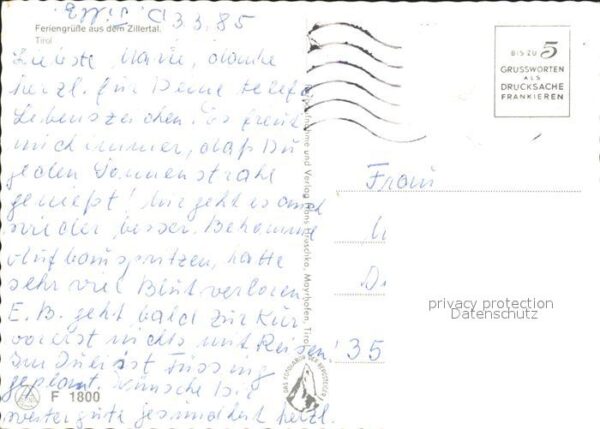 3.3.85
Feriengrüße aus dem Zillertal.
Tirol
Liebste Marie, danke
herzl. für Deine telef.
Lebenszeichen. Es freut
mich immer, daß Du
jeden Sonnenstrahl
genießt! Mir geht es auch
wieder besser. Bekomme
Aufbauspritzen, hatte
sehr viel Blut verloren.
E. B. geht bald zur Kur
vorerst nichts mit Reisen!
Im Juli ist Füssing
geplant. Wünsche Dir
weiter gute Gesundheit herzl.
F 1800
Aufnahme und Verlag Hans Hruschka, Mayrhofen, Tirol
BIS ZU 5
GRUSSWORTEN
ALS
DRUCKSACHE
FRANKIEREN
Frau
35
privacy protection
Datenschutz